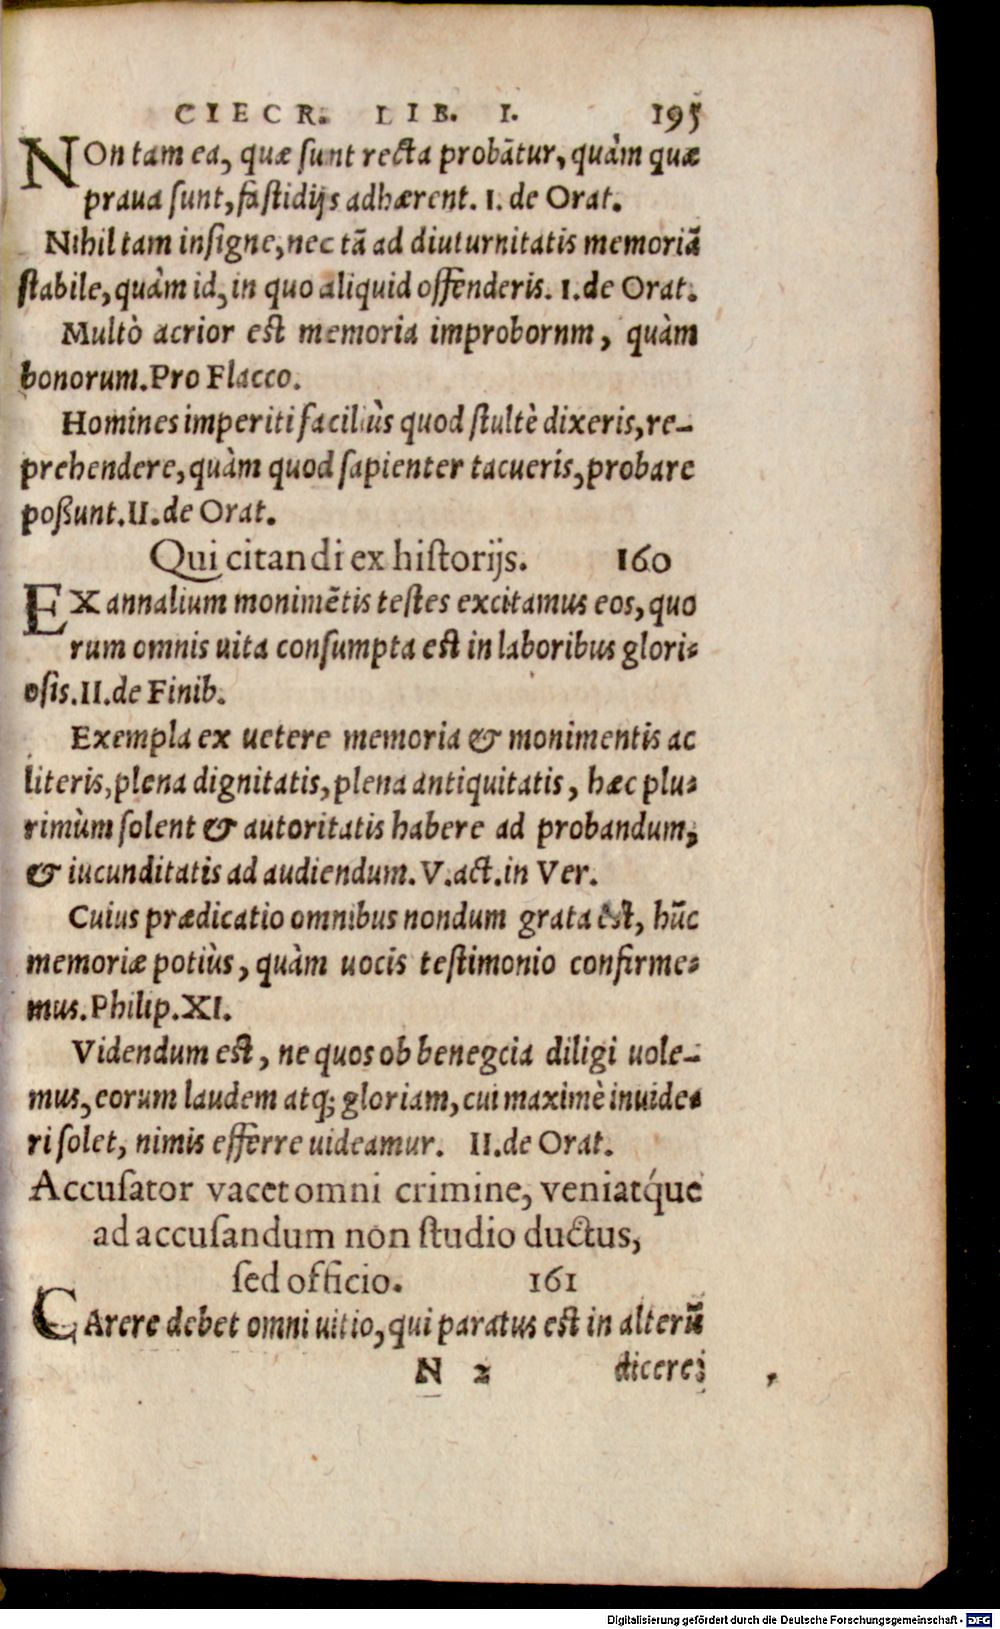 CIECR. LIB. I. 195
NOn tam ea, quæ ſunt recta probãtur, quàm quæ
praua ſunt, faſtidijs adhærent. I. de Orat.
Nihil tam inſigne, nec tã ad diuturnitatis memoriã
ſtabile, quàm id, in quo aliquid offenderis. I. de Orat.
Multò acrior eſt memoria improbornm, quàm
bonorum. Pro Flacco.
Homines imperiti faciliùs quod ſtultè dixeris, re-
prehendere, quàm quod ſapienter tacueris, probare
poßunt. II. de Orat.
Qui citandi ex hiſtorijs. 160
EX annalium monimẽtis teſtes excitamus eos, quo
rum omnis uita conſumpta eſt in laboribus glori-
oſis. II. de Finib.
Exempla ex uetere memoria & monimentis ac
literis, plena dignitatis, plena antiquitatis, hæc plu-
rimùm ſolent & autoritatis habere ad probandum,
& iucunditatis ad audiendum. V. act. in Ver.
Cuius prædicatio omnibus nondum grata eſt, hũc
memoriæ potiùs, quàm uocis teſtimonio confirme-
mus. Philip. XI.
Videndum eſt, ne quos ob benegcia diligi uole-
mus, eorum laudem atq; gloriam, cui maximè inuide-
ri ſolet, nimis efferre uideamur. II. de Orat.
Accuſator vacet omni crimine, veniatq́ue
ad accuſandum non ſtudio ductus,
ſed officio. 161
CArere debet omni uitio, qui paratus eſt in alterũ
N 2 dicere;
Digitalisierung gefördert durch die Deutsche Forschungsgemeinschaft - DFG